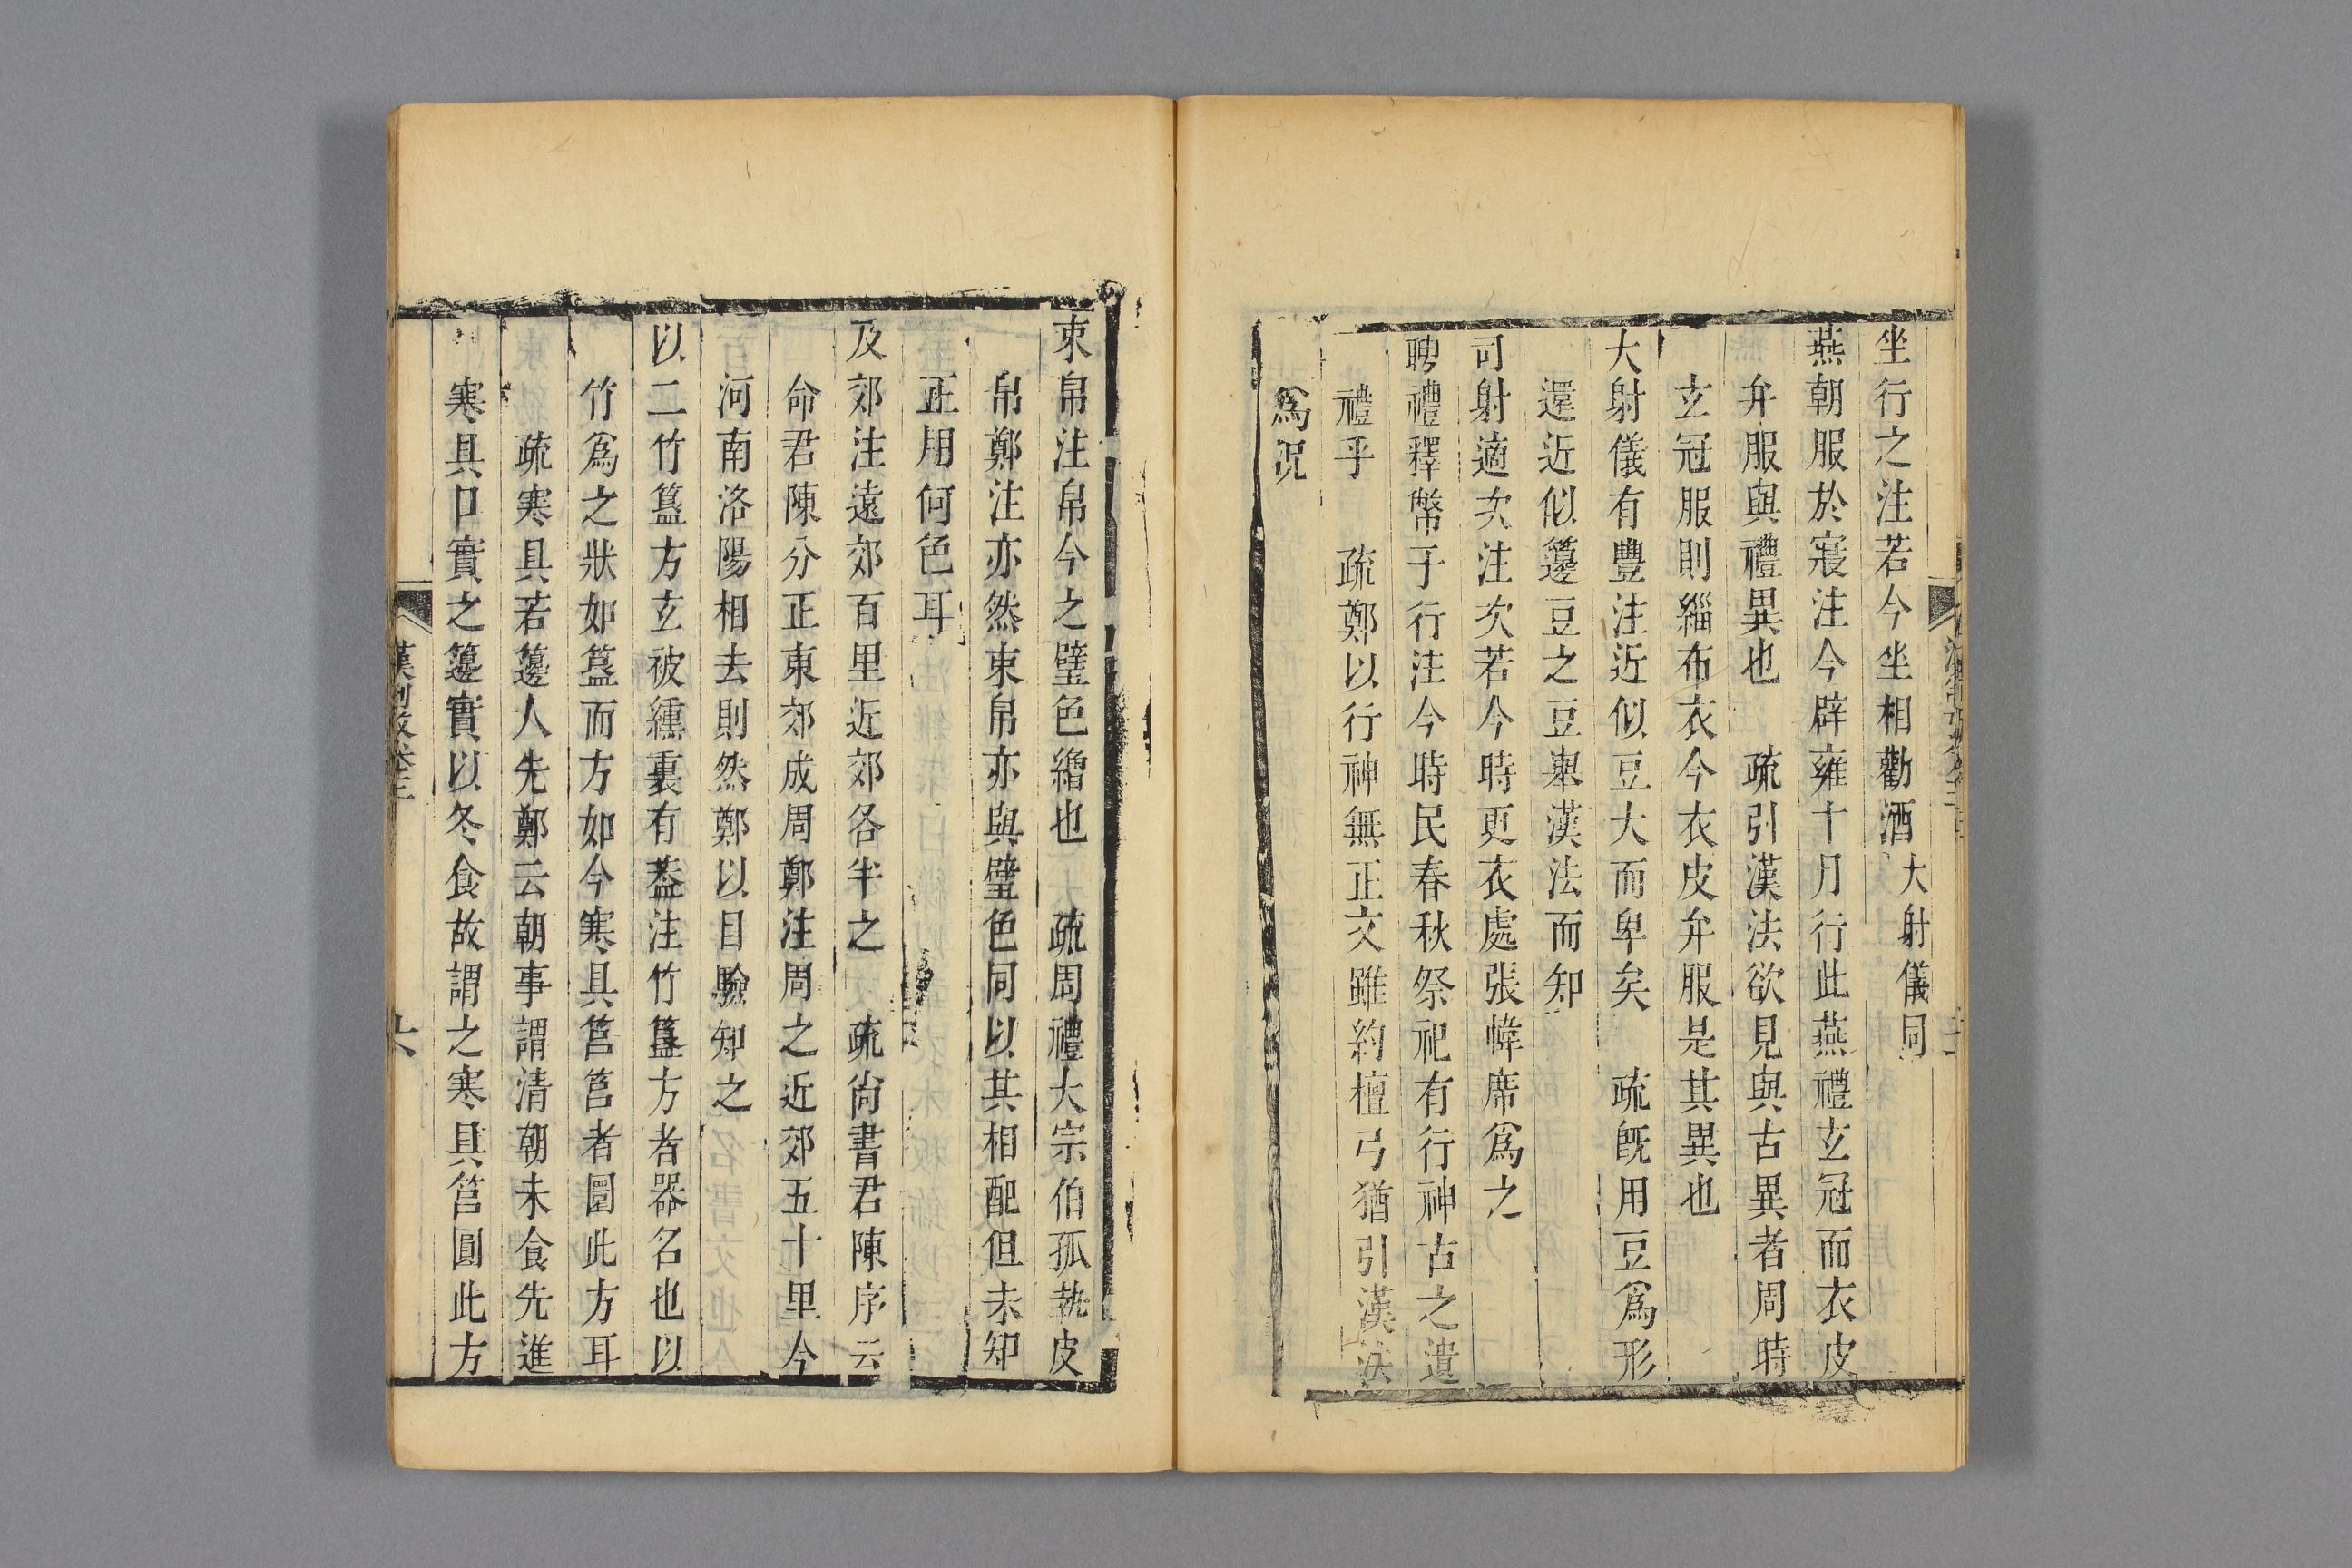 坐行之注若今坐相勸酒大射儀同
燕朝服於寢注今辟雍十月行此燕禮玄冠而衣皮
弁服與禮異也　疏引漢法欲見與古異者周時
玄冠服則緇布衣今衣皮弁服是其異也
大射儀有豐注近似豆大而卑矣　疏旣用豆爲形
還近似籩豆之豆舉漢法而知
司射適次注次若今時更衣處張幃席爲之
聘禮釋幣于行注今時民春秋祭祀有行神古之遺
禮乎　疏鄭以行神無正文雖約檀弓猶引漢法
爲況
束帛注帛今之璧色繒也　疏周禮大宗伯孤執皮
帛鄭注亦然束帛亦與璧色同以其相配但未知
正用何色耳
及郊注遠郊百里近郊各半之　疏尙書君陳序云
命君陳分正東郊成周鄭注周之近郊五十里今
河南洛陽相去則然鄭以目驗知之
以二竹簋方玄被纁裏有葢注竹簋方者器名也以
竹爲之狀如簋而方如今寒具筥筥者圜此方耳
疏寒具若籩人先鄭云朝事謂清朝未食先進
寒具口實之籩實以冬食故謂之寒具筥圓此方
漢制攷卷三
六